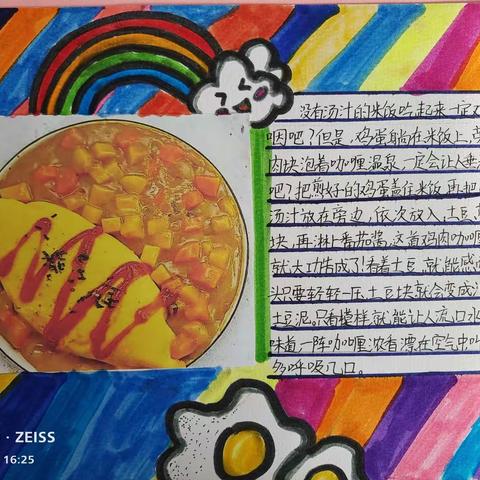 没有汤汁的米饭吃起来一定又
咽吧？但是，鸡蛋躺在米饭上，
肉块泡着咖喱温泉，一定会让人垂
吧？把煎好的鸡蛋盖住米饭，再把
汤汁放在旁边，依次放入，土豆，
块，再淋上番茄酱，这道鸡肉咖喱
就大功告成了！看着土豆，就能感
头只要轻轻一压，土豆块就会变成
土豆泥。只看模样就能让人流口水
味道一阵咖喱浓香漂在空气中叫
多呼吸几口。
· ZEISS
16:25